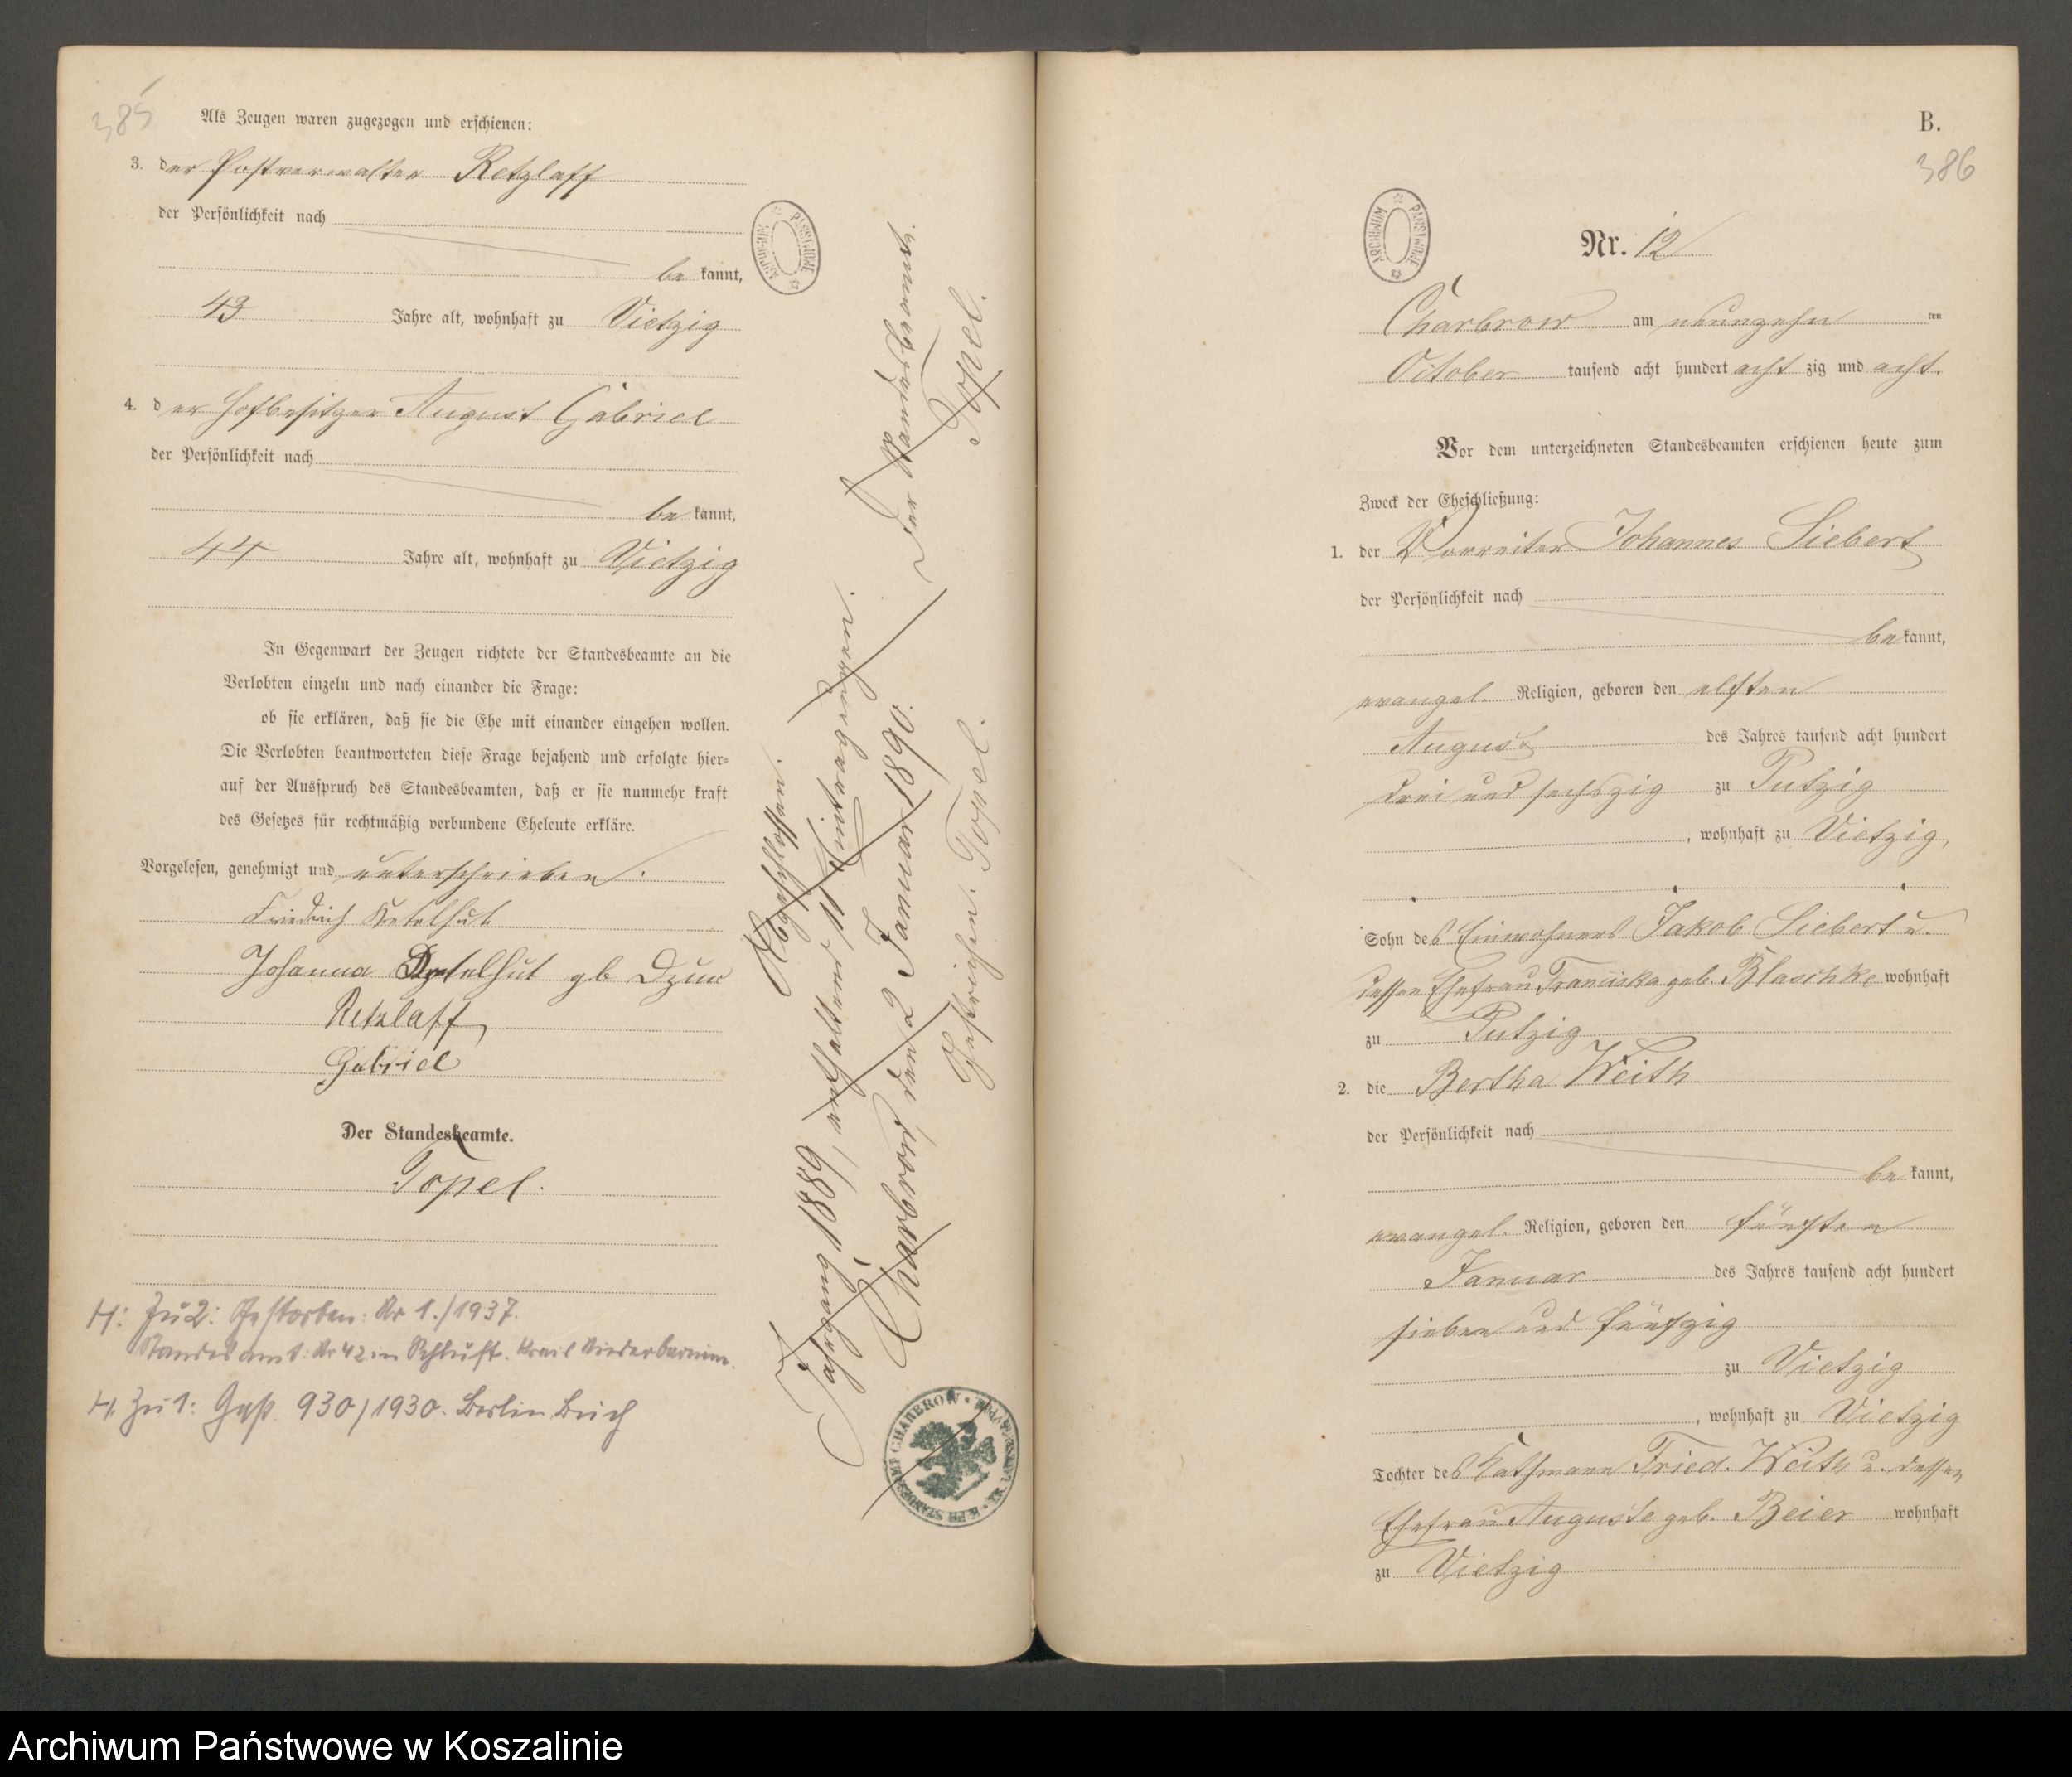 385
Als Zeugen waren zugezogen und erschienen:
3. der Postverwalter Retzlaff
der Persönlichkeit nach
be kannt,
43 Jahre alt, wohnhaft zu Vietzig
4. der Hofbesitzer August Gabriel
der Persönlichkeit nach
be kannt,
44 Jahre alt, wohnhaft zu Vietzig
In Gegenwart der Zeugen richtete der Standesbeamte an die
Verlobten einzeln und nach einander die Frage:
ob sie erklären, daß sie die Ehe mit einander eingehen wollen.
Die Verlobten beantworteten diese Frage bejahend und erfolgte hier-
auf der Ausspruch des Standesbeamten, daß er sie nunmehr kraft
des Gesetzes für rechtmäßig verbundene Eheleute erkläre.
Vorgelesen, genehmigt und unterschrieben.
Friedrich Ketelhut
Johanna Ketelhut gb
Retzlaff
Gabriel
Der Standesbeamte.
Topel.
H: Zu 2: Gestorben: Nr 1./1937.
Standesamt: Nr 42 in Schluft. Kreis Niederbarnim.
H. Zu 1: Gest. 930/1930. Berlin Buch
Abgeschlossen.
Jahrgang 1889, enthaltend 11 Eintragungen.
Charbrow, den 2 Januar 1890. Der Standesbeamte.
Gestrichen. Topel. Topel.
ARCHIWUM PAŃSTWOWE
STANDESAMT CHARBROW
B.
386
ARCHIWUM PAŃSTWOWE
Nr. 12
Charbrow am neunzehn ten
October tausend acht hundert acht zig und acht.
Vor dem unterzeichneten Standesbeamten erschienen heute zum
Zweck der Eheschließung:
1. der Vorreiter Johannes Siebert
der Persönlichkeit nach
be kannt,
evangel. Religion, geboren den elften
August des Jahres tausend acht hundert
drei und sechszig zu Putzig
, wohnhaft zu Vietzig,
Sohn des Einwohners Jakob Siebert u.
dessen Ehefrau Franziska geb. Blaschke wohnhaft
zu Putzig
2. die Bertha Weith
der Persönlichkeit nach
be kannt,
evangel. Religion, geboren den fünften
Januar des Jahres tausend acht hundert
sieben und fünfzig
zu Vietzig
, wohnhaft zu Vietzig
Tochter des Kathmann Fried. Weith u. dessen
Ehefrau Auguste geb. Beier wohnhaft
zu Vietzig
Archiwum Państwowe w Koszalinie